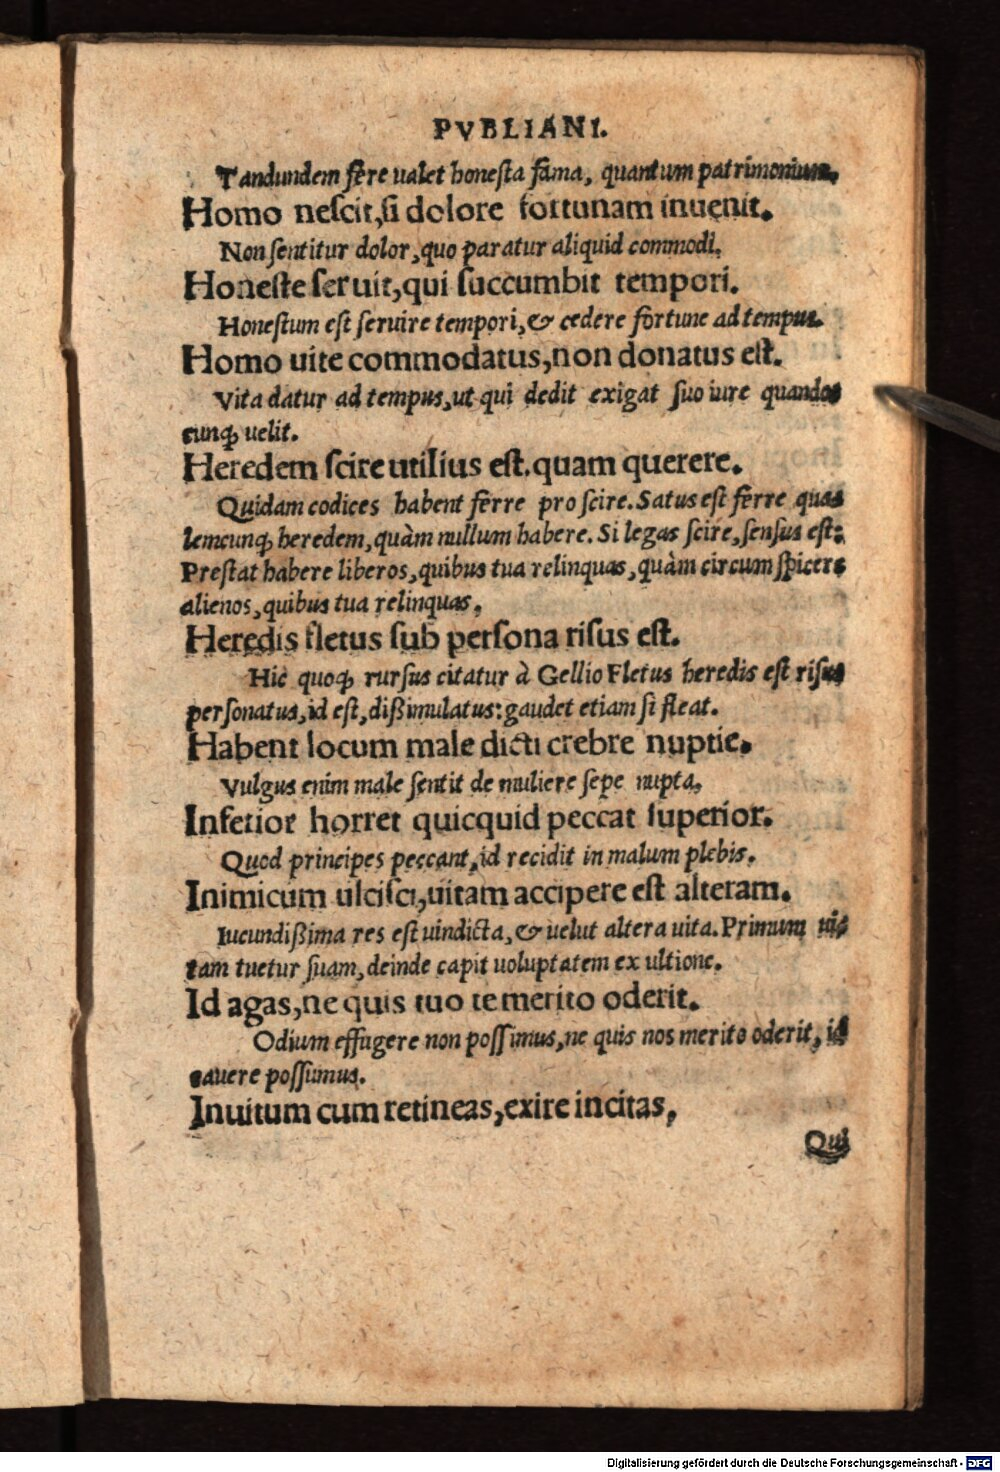 PVBLIANI.
Tandundem fere ualet honesta fama, quantum patrimonium.
Homo nescit, si dolore fortunam inuenit.
Non sentitur dolor, quo paratur aliquid commodi.
Honeste seruit, qui succumbit tempori.
Honestum est seruire tempori, & cedere fortune ad tempus.
Homo uite commodatus, non donatus est.
Vita datur ad tempus, ut qui dedit exigat suo iure quando
cunq; uelit.
Heredem scire utilius est. quam querere.
Quidam codices habent ferre pro scire. Satus est ferre qua
lemcunq; heredem, quàm nullum habere. Si legas scire, sensus est:
Prestat habere liberos, quibus tua relinquas, quàm circumspicere
alienos, quibus tua relinquas.
Heredis fletus sub persona risus est.
Hic quoq; rursus citatur à Gellio Fletus heredis est risus
personatus, id est, dißimulatus: gaudet etiam si fleat.
Habent locum male dicti crebre nuptie.
Vulgus enim male sentit de muliere sepe nupta.
Inferior horret quicquid peccat superior.
Quod principes peccant, id recidit in malum plebis.
Inimicum ulcisci, uitam accipere est alteram.
Iucundißima res est uindicta, & uelut altera uita. Primum ui
tam tuetur suam, deinde capit uoluptatem ex ultione.
Id agas, ne quis tuo te merito oderit.
Odium effugere non possimus, ne quis nos merito oderit, id
cauere possumus.
Inuitum cum retineas, exire incitas,
Qui
Digitalisierung gefördert durch die Deutsche Forschungsgemeinschaft - DFG